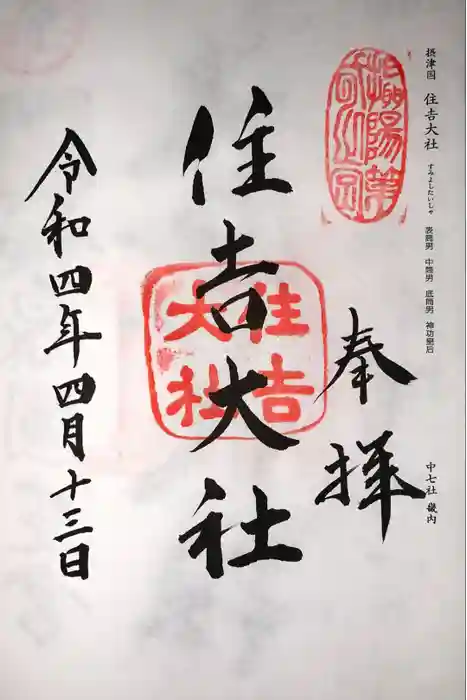 摂津国 住吉大社 すみよしたいしゃ 表筒男 中筒男 底筒男 神功皇后
中七社 畿内
奉拝
住吉大社
住吉大社
令和四年四月十三日